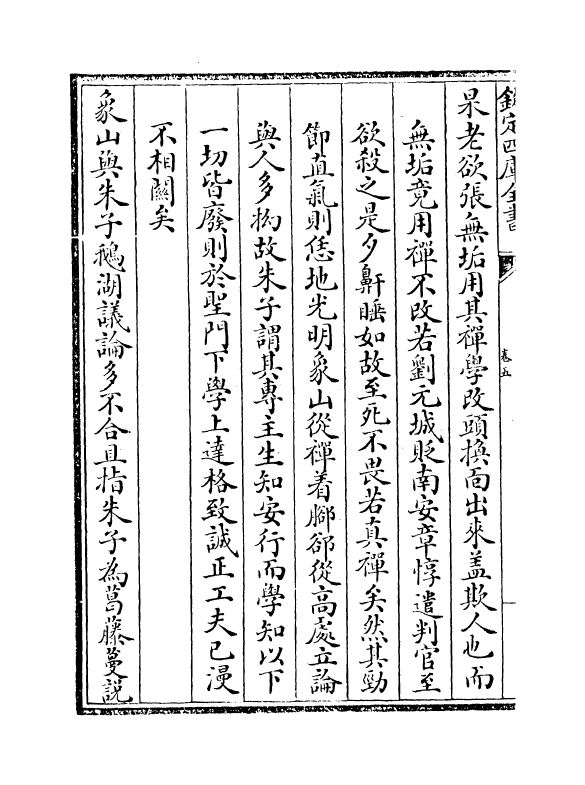 欽定四庫全書
卷五
杲老欲張無垢用其禪學改頭換面出來盖欺人也而
無垢竟用禪不改若劉元城貶南安章惇遣判官至
欲殺之是夕鼾睡如故至死不畏若真禪矣然其勁
節直氣則恁地光明象山從禪着脚郤從高處立論
與人多拗故朱子謂其專主生知安行而學知以下
一切皆廢則於聖門下學上達格致誠正工夫已漫
不相關矣
象山與朱子鵝湖議論多不合且指朱子為葛藤蔓説